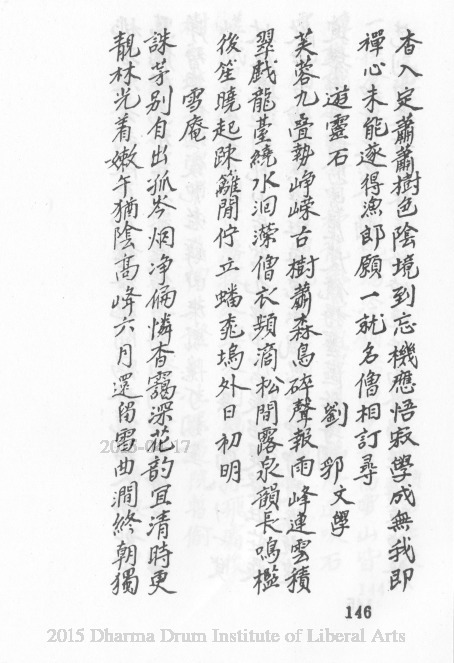 杳入定蕭蕭樹色陰境到忘機應悟寂學成無我即
禪心未能遂得漁郎願一就名僧相訂尋
遊靈石
劉 郭文學
芙蓉九疊勢崢嶸古樹蕭森鳥碎聲報雨峰連雲積
翠戲龍臺繞水洄瀠僧衣頻滴松間露泉韻長鳴檻
後笙曉起踈籬閒佇立蟠
塢外日初明
雪庵
誅茅別自出孤岑烟净偏憐杳靄深花韵宜清時更
靚林光着嫩午猶陰高峰六月還留雪曲澗終朝獨
146
2015 Dharma Drum Institute of Liberal Arts